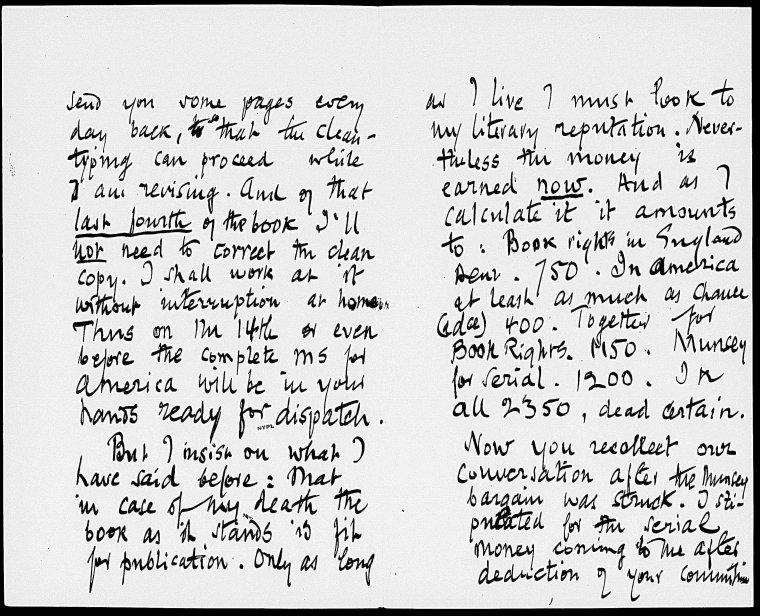 send you some pages every
day back, so that the clean-
typing can proceed while
I am revising. And of that
last fourth of the book I'll
not need to correct the clean
copy. I shall work at it
without interruption at home
Thus on the 14th or even
before the complete MS for
America will be in your
hands ready for dispatch.
NYPL
But I insist on what I
have said before: that
in case of my death the
book as it stands is fit
for publication. Only as long
as I live I must look to
my literary reputation. Never-
theless the money is
earned now. And as I
calculate it it amounts
to: Book rights in England
Dent. 750. In America
at least as much as Chance
(adce) 400. Together for
Book Rights. 1150. Munsey
for serial. 1200. In
all 2350, dead certain.
Now you recollect our
conversation after the Munsey
bargain was struck. I sti-
pulated for the serial
money coming to me after
deduction of your